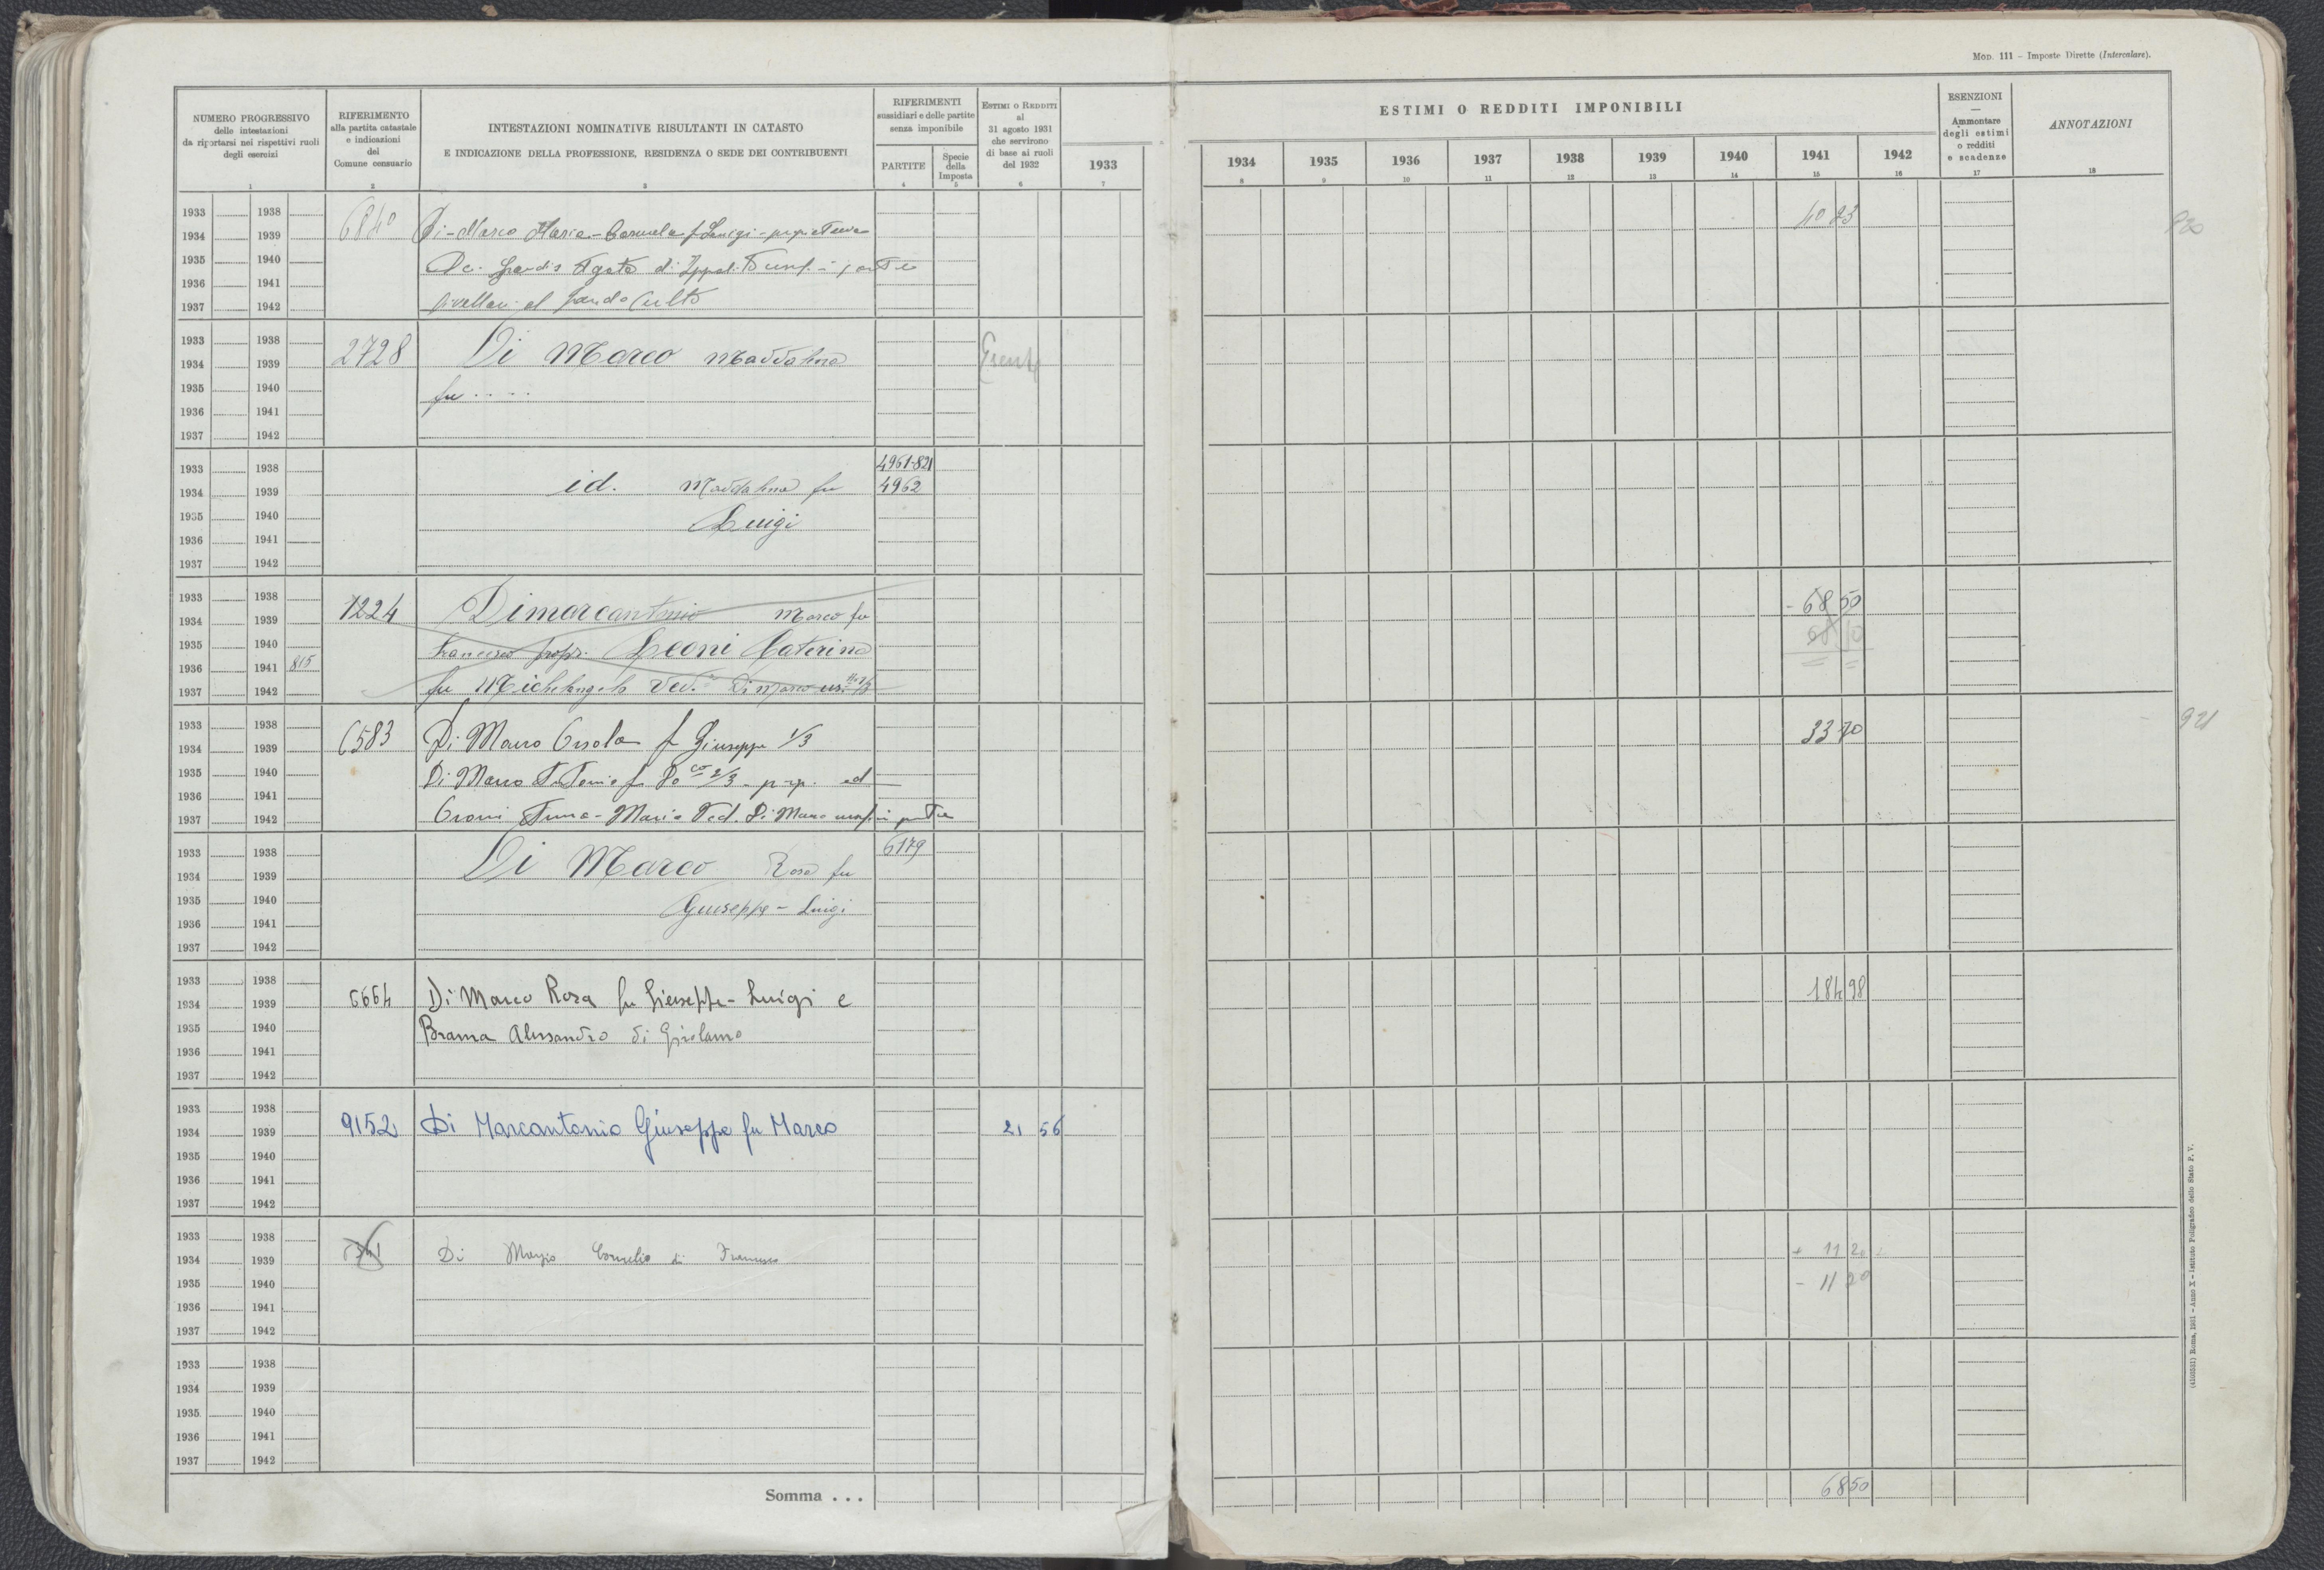 Mod. 111 - Imposte Dirette (Intercalare).
NUMERO PROGRESSIVO
delle intestazioni
da riportarsi nei rispettivi ruoli
degli esercizi
RIFERIMENTO
alla partita catastale
e indicazioni
del
Comune censuario
INTESTAZIONI NOMINATIVE RISULTANTI IN CATASTO
E INDICAZIONE DELLA PROFESSIONE, RESIDENZA O SEDE DEI CONTRIBUENTI
RIFERIMENTI
sussidiari e delle partite
senza imponibile
PARTITE
Specie
della
Imposta
ESTIMI O REDDITI
al
31 agosto 1931
che servirono
di base ai ruoli
del 1932
1933
ESTIMI O REDDITI IMPONIBILI
1934 1935 1936 1937 1938 1939 1940 1941 1942
ESENZIONI
—
Ammontare
degli estimi
o redditi
e scadenze
ANNOTAZIONI
1 2 3 4 5 6 7 8 9 10 11 12 13 14 15 16 17 18
1933 1938
1934 1939 6840 Di-Marco Maria-Carmela f Luigi - 40 23 920
1935 1940 Agata di
1936 1941
1937 1942 Culto
1933 1938
1934 1939 2728 Di Marco Maddalena Esente
1935 1940 fu . . . .
1936 1941
1937 1942
1933 1938 4961-821
1934 1939 id. Maddalena fu 4962
1935 1940 Luigi
1936 1941
1937 1942
1933 1938
1934 1939 1224 Dimarcantonio Marco fu - 68 50
1935 1940 Francesco propr. Leoni Caterina 68 10
1936 1941 815
1937 1942 fu Michelangelo Ved. Di Marco
1933 1938
1934 1939 6583 Di Marco Orsola f Giuseppe 1/3 33 70 921
1935 1940 Di Marco Antonio f Do co 2/3 - prop. ed
1936 1941
1937 1942 Anna-Maria Ved. Di Marco
1933 1938 6179
1934 1939 Di Marco Rosa fu
1935 1940 Giuseppe - Luigi
1936 1941
1937 1942
1933 1938
1934 1939 6664 Di Marco Rosa fu Giuseppe-Luigi e 184 98
1935 1940 Brama Alessandro di Girolamo
1936 1941
1937 1942
1933 1938
1934 1939 9152 Di Marcantonio Giuseppe fu Marco 21 56
1935 1940
1936 1941
1937 1942
1933 1938
1934 1939 Di Marzio Cornelio di Francesco + 11 20
1935 1940 - 11 20
1936 1941
1937 1942
1933 1938
1934 1939
1935 1940
1936 1941
1937 1942
Somma . . . 68 50
(410531) Roma, 1931 - Anno X - Istituto Poligrafico dello Stato P. V.